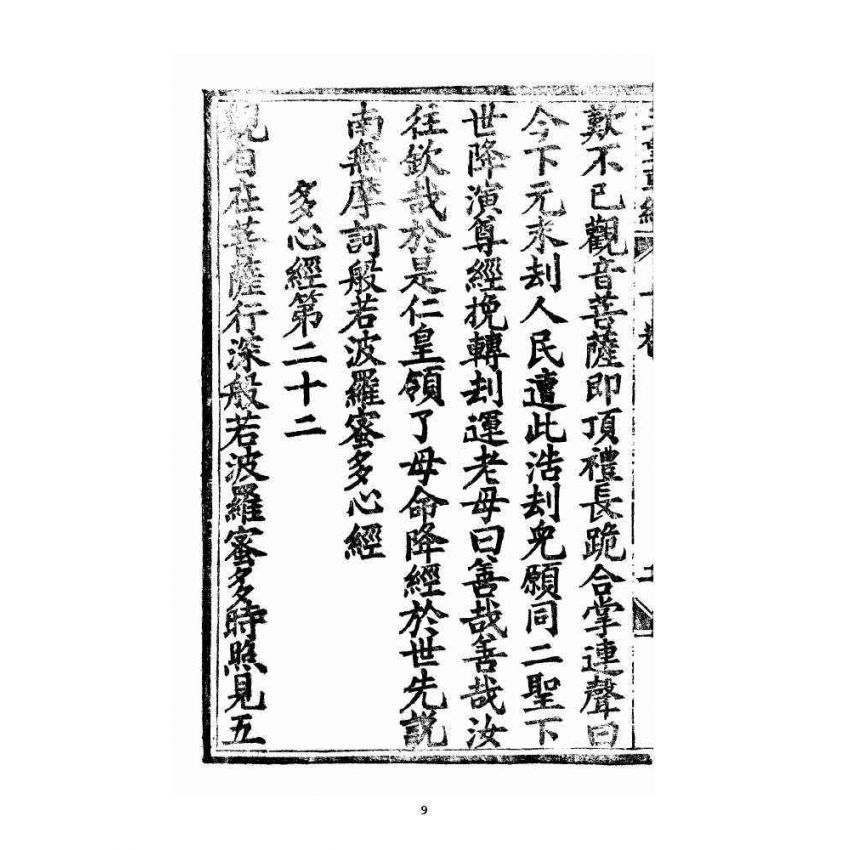 歎不已觀音菩薩即頂禮長跪合掌連聲曰
今下元末刦人民遭此浩刦兒願同二聖下
世降演尊經挽轉刦運老母曰善哉善哉汝
往欽哉於是仁皇領了母命降經於世先説
南無摩訶般若波羅蜜多心經
多心經第二十二
觀自在菩薩行深般若波羅蜜多時照見五
9